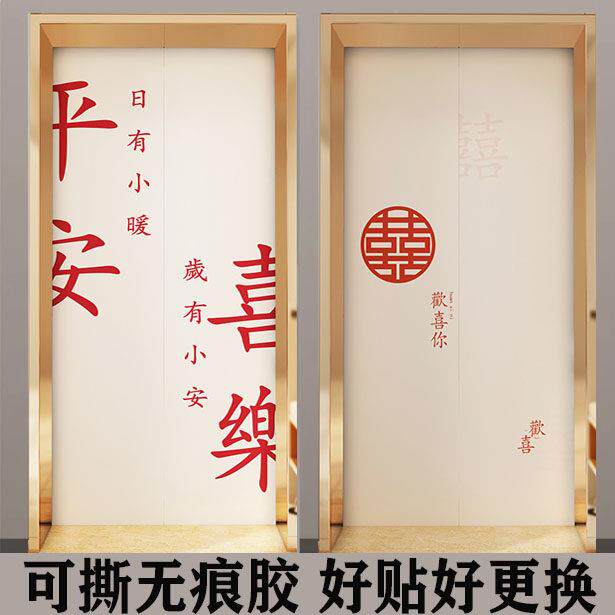 平安
日有小暖
歲有小安
喜樂
囍
囍
huan xi ni
歡喜你
歡喜
可撕无痕胶 好贴好更换